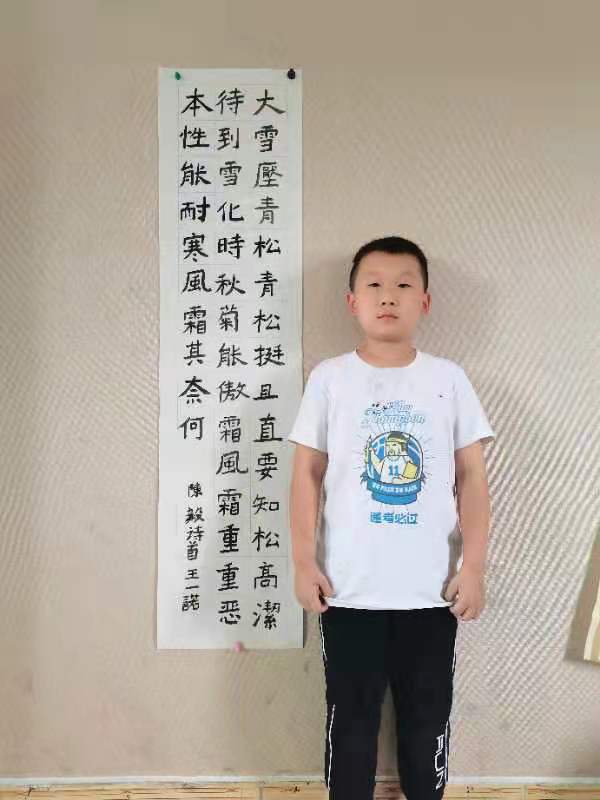 大雪壓青松青松挺且直要知松高潔
待到雪化時秋菊能傲霜風霜重重恶
本性能耐寒風霜其奈何
陳毅诗首 王一諾
11
逢考必过